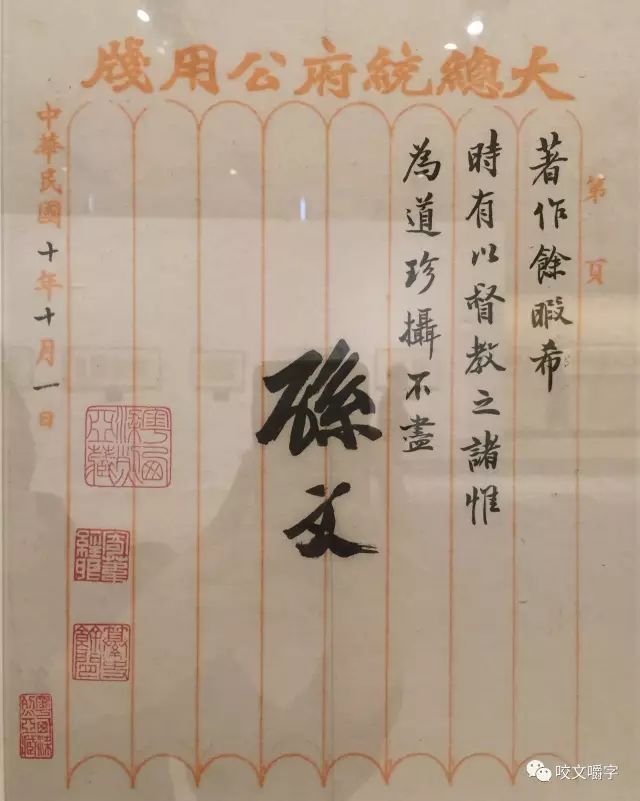 大總統府公用牋
第 頁
著作餘暇希
時有以督教之諸惟
為道珍攝不盡
孫文
中華民國十年十月一日
咬文嚼字